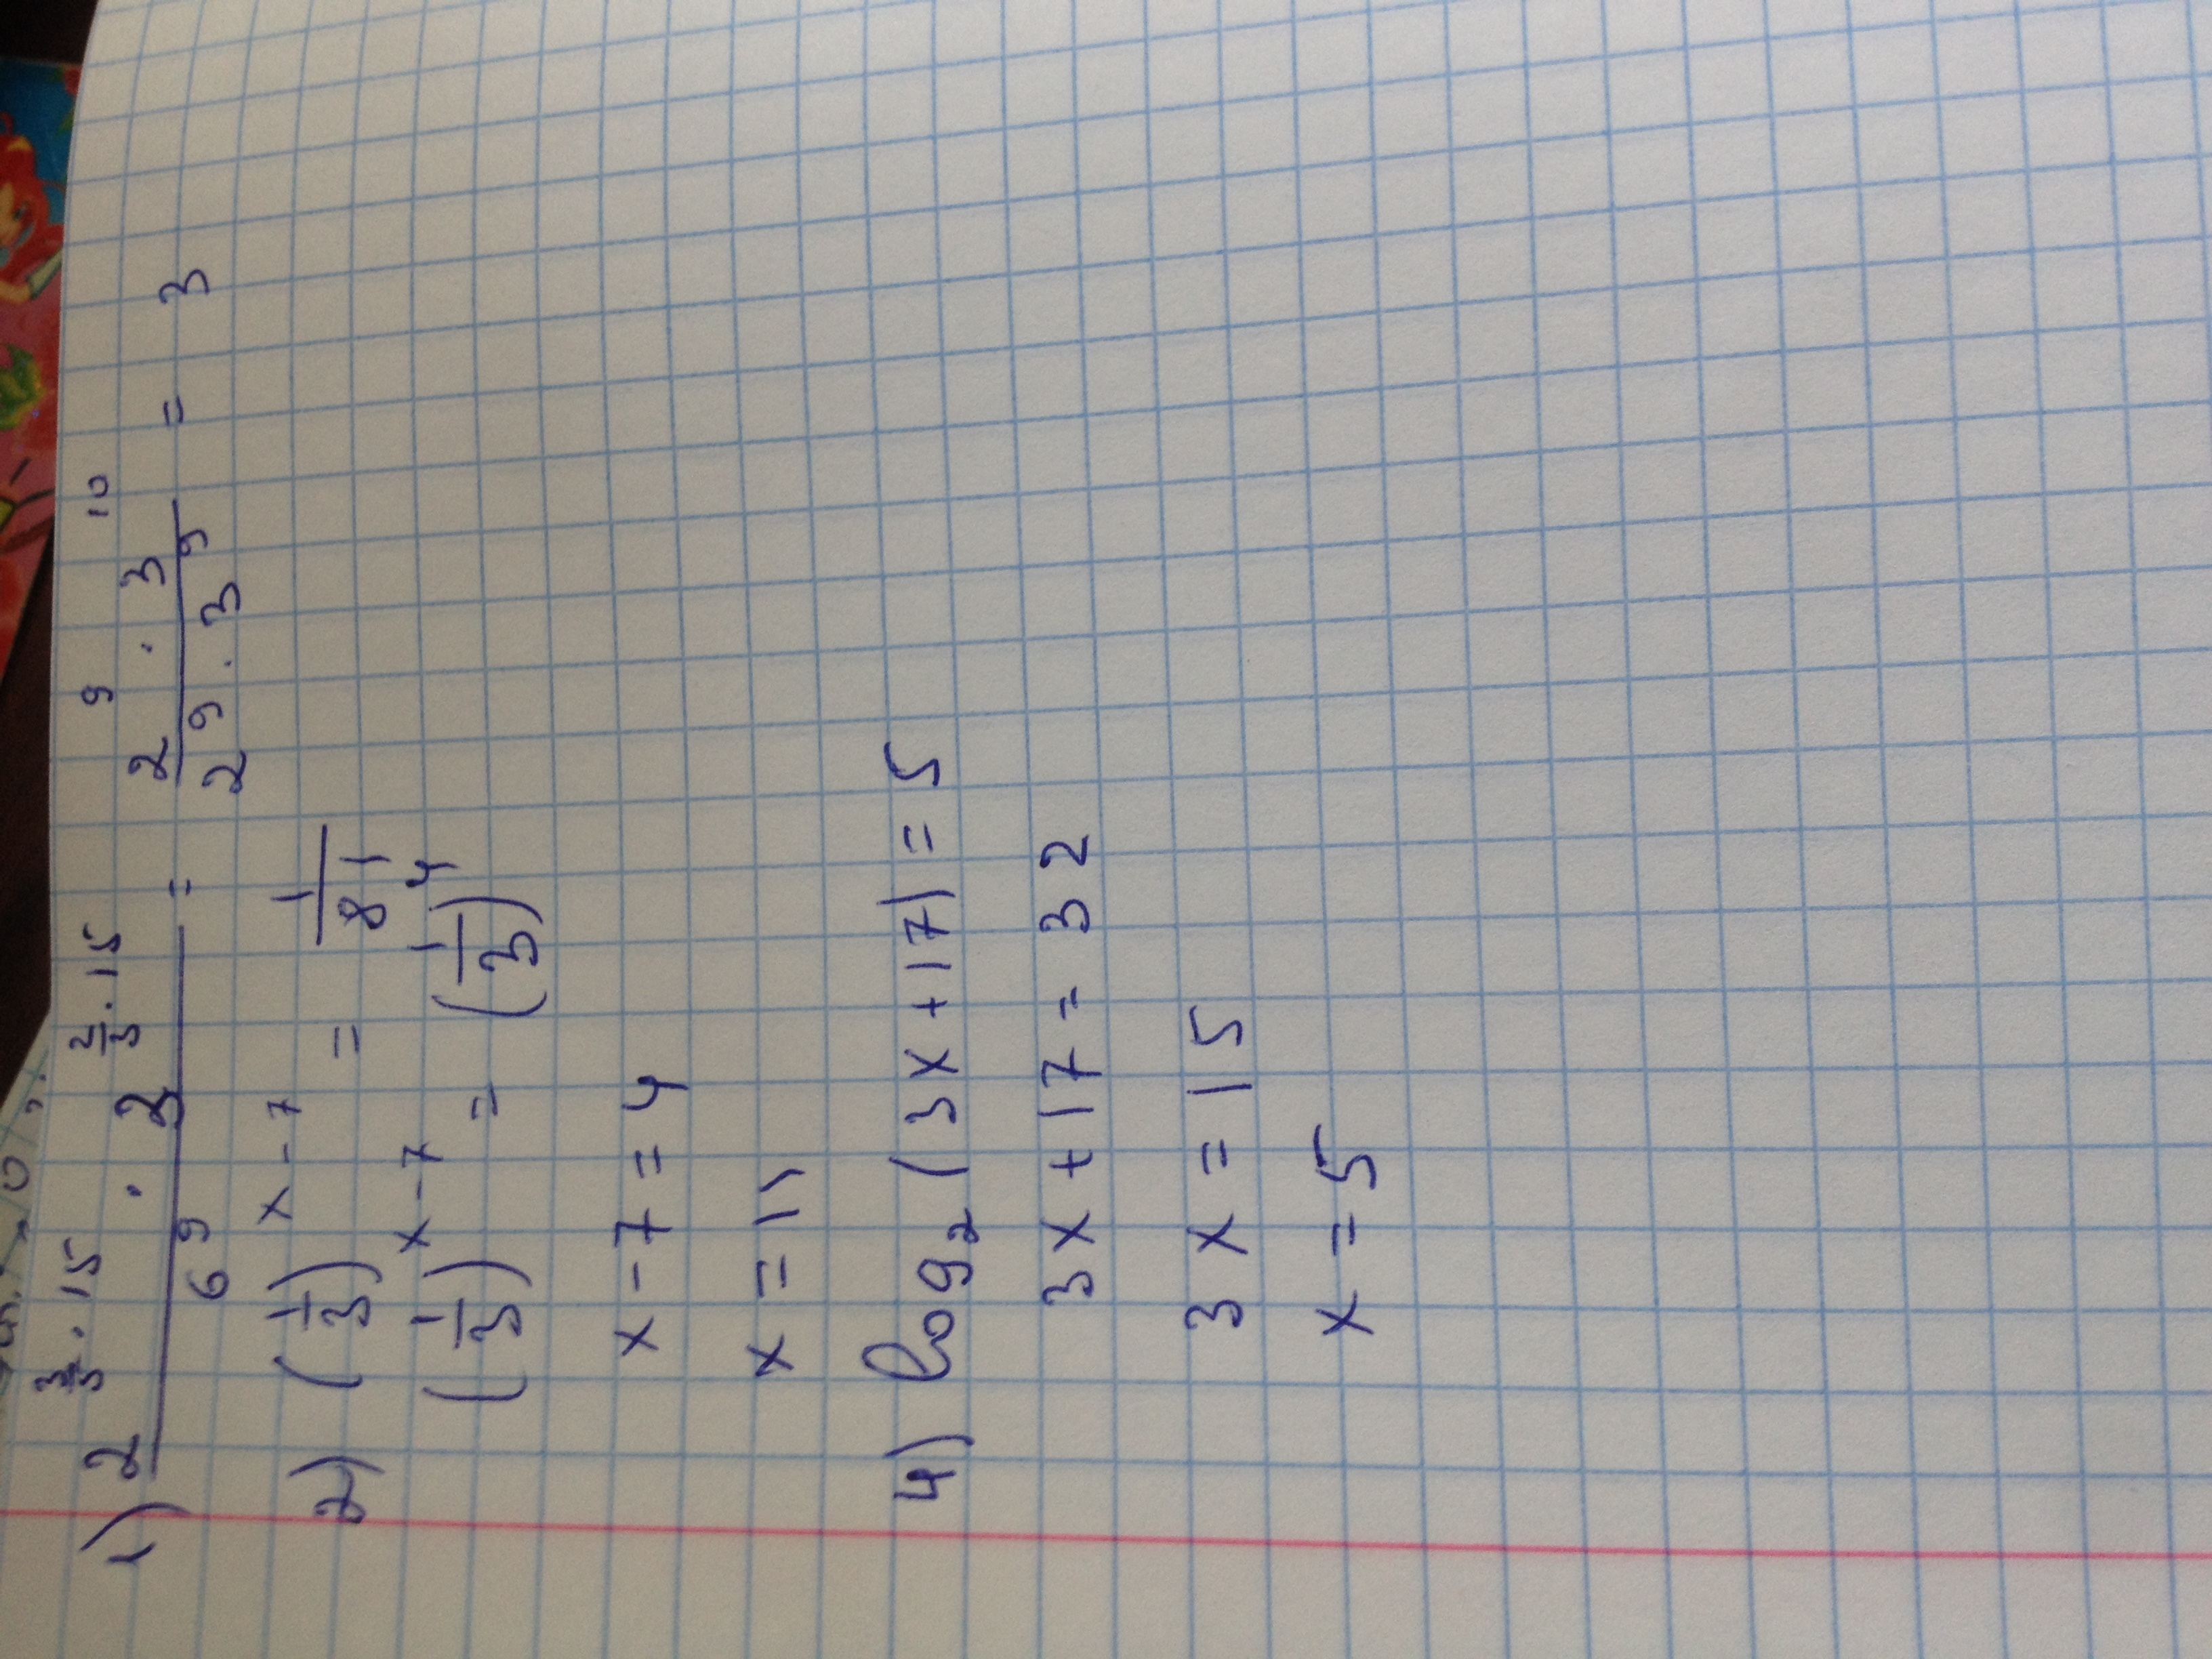 1) (2^(3/5 · 15) · 3^(2/3 · 15)) / 6^9 = (2^9 · 3^10) / (2^9 · 3^9) = 3
2) (1/3)^(x-7) = 1/81
(1/3)^(x-7) = (1/3)^4
x-7=4
x=11
4) log₂(3x+17)=5
3x+17=32
3x=15
x=5